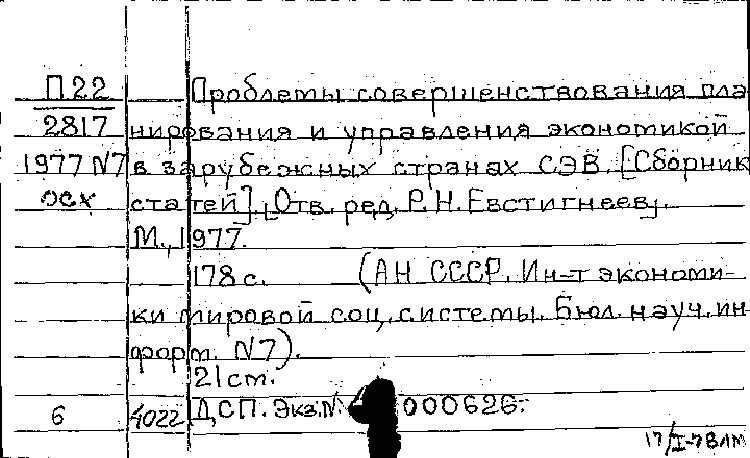 П.22 Проблемы совершенствования пла
2817 нирования и управления экономикой
1977 N7 в зарубежных странах СЭВ. [Сборник
осх статей]. [Отв. ред. Р.Н. Евстигнеев].
М., 1977.
178 с. (АН СССР. Ин-т экономи-
ки мировой соц. системы. Бюл. науч. ин
форм. N7).
21 cm.
6 4022 ДСП. Экз. N 000626.
17/I-78 ЛМ